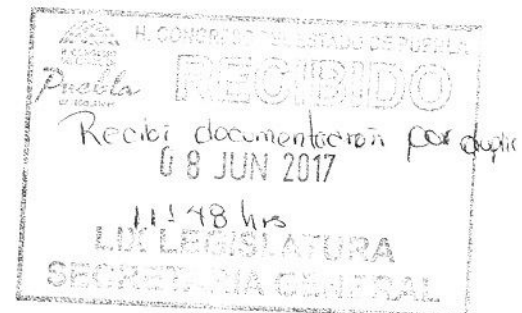 H. CONGRESO DEL ESTADO DE PUEBLA
Puebla
RECIBIDO
Recibi documentación por duplic
08 JUN 2017
11:48 hrs
LIX LEGISLATURA
SECRETARIA GENERAL